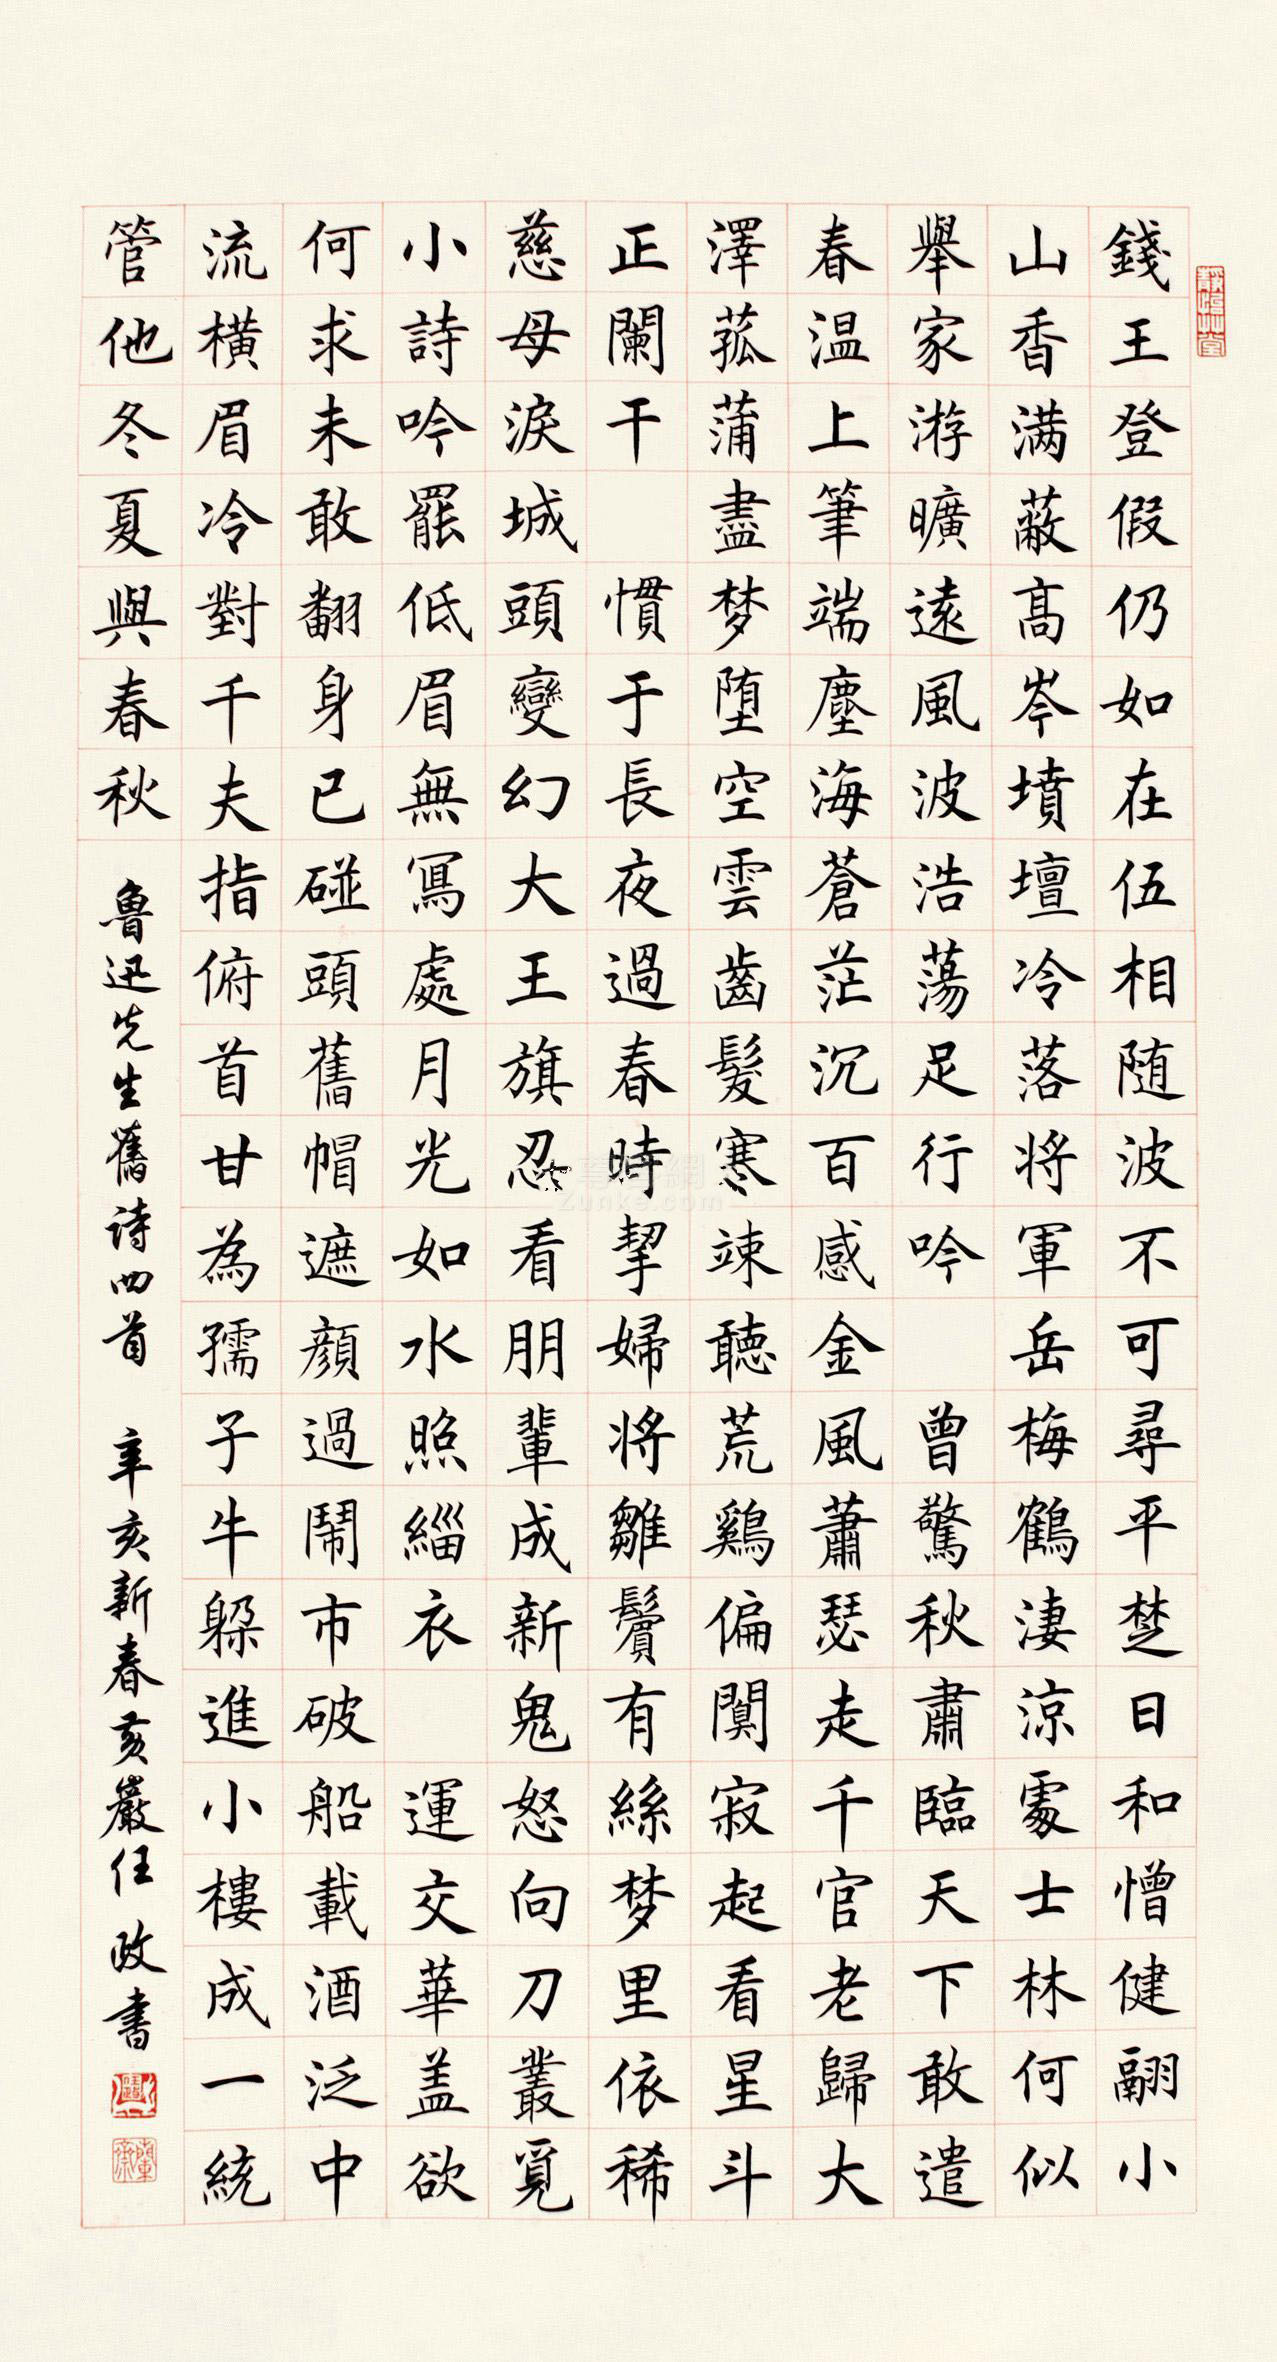 錢王登假仍如在伍相随波不可尋平楚日和憎健翮小
山香满蔽高岑墳壇冷落将軍岳梅鶴淒涼處士林何似
舉家游曠遠風波浩蕩足行吟 曾驚秋肅臨天下敢遣
春温上筆端塵海蒼茫沉百感金風蕭瑟走千官老歸大
澤菰蒲盡梦堕空雲齒髮寒竦聽荒鷄偏闃寂起看星斗
正闌干 慣于長夜過春時挈婦将雛鬢有絲梦里依稀
慈母淚城頭變幻大王旗忍看朋輩成新鬼怒向刀叢覓
小詩吟罷低眉無寫處月光如水照緇衣 運交華盖欲
何求未敢翻身已碰頭舊帽遮顔過鬧市破船載酒泛中
流横眉冷對千夫指俯首甘為孺子牛躲進小樓成一統
管他冬夏與春秋
魯迅先生舊诗四首 辛亥新春亥嚴任政書
尊客網
Zunke.com